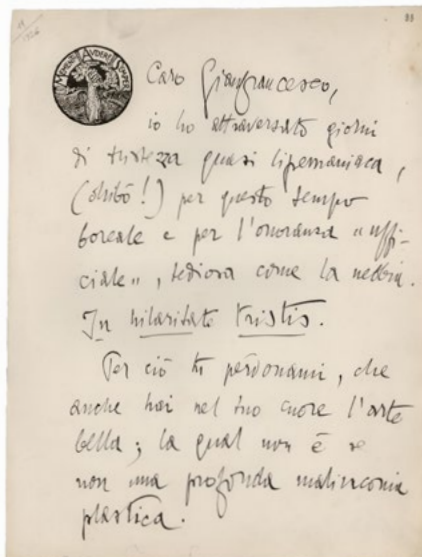 MEMENTO AUDERE SEMPER
Caro Gianfrancesco,
io ho attraversato giorni
di tristezza quasi lipemaniaca,
(ohibò!) per questo tempo
boreale e per l'onoranza "uffi-
ciale", tediosa come la nebbia.
In hilaritate tristis.
Per ciò tu perdonami, che
anche hai nel tuo cuore l'arte
bella; la qual non è se
non una profonda malinconia
plastica.